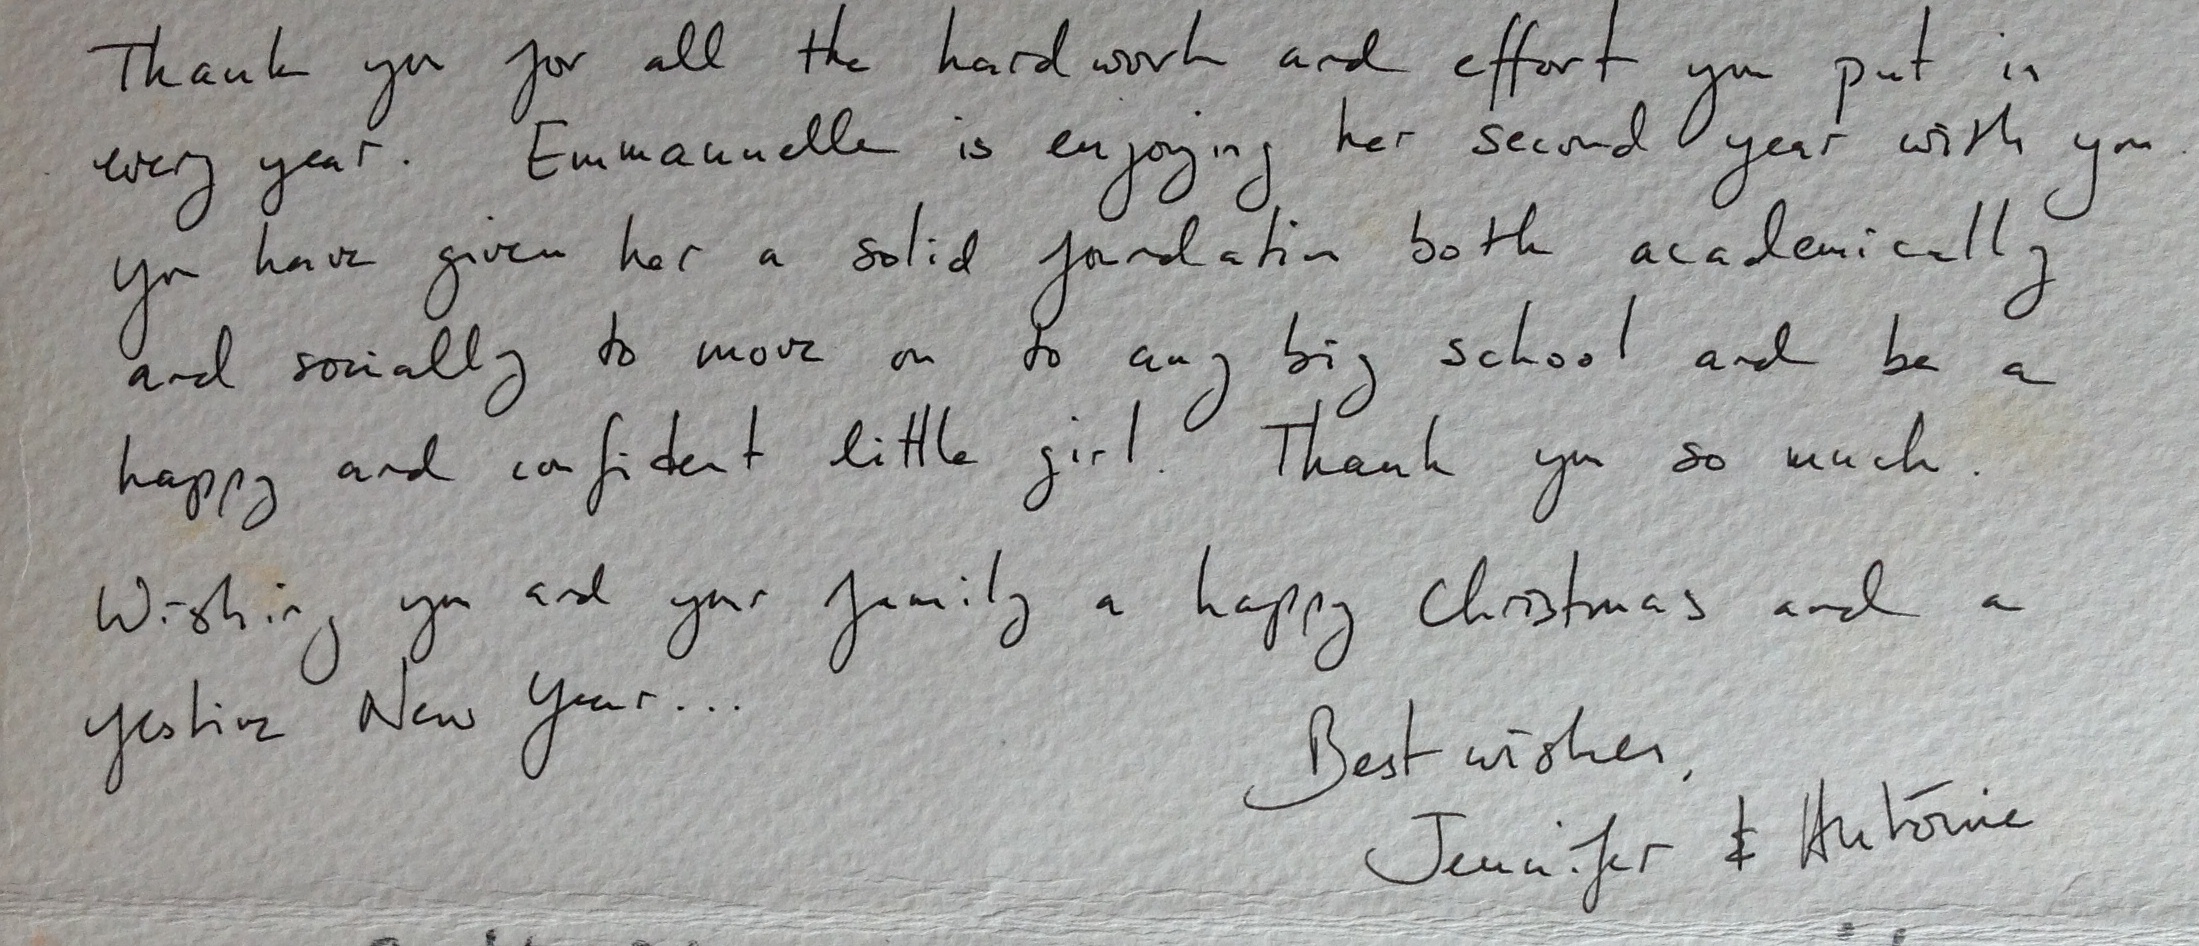 Thank you for all the hard work and effort you put in
every year. Emmanuelle is enjoying her second year with you.
You have given her a solid foundation both academically
and socially to move on to any big school and be a
happy and confident little girl. Thank you so much.
Wishing you and your family a happy Christmas and a
festive New Year...
Best wishes,
Jennifer & Antoine